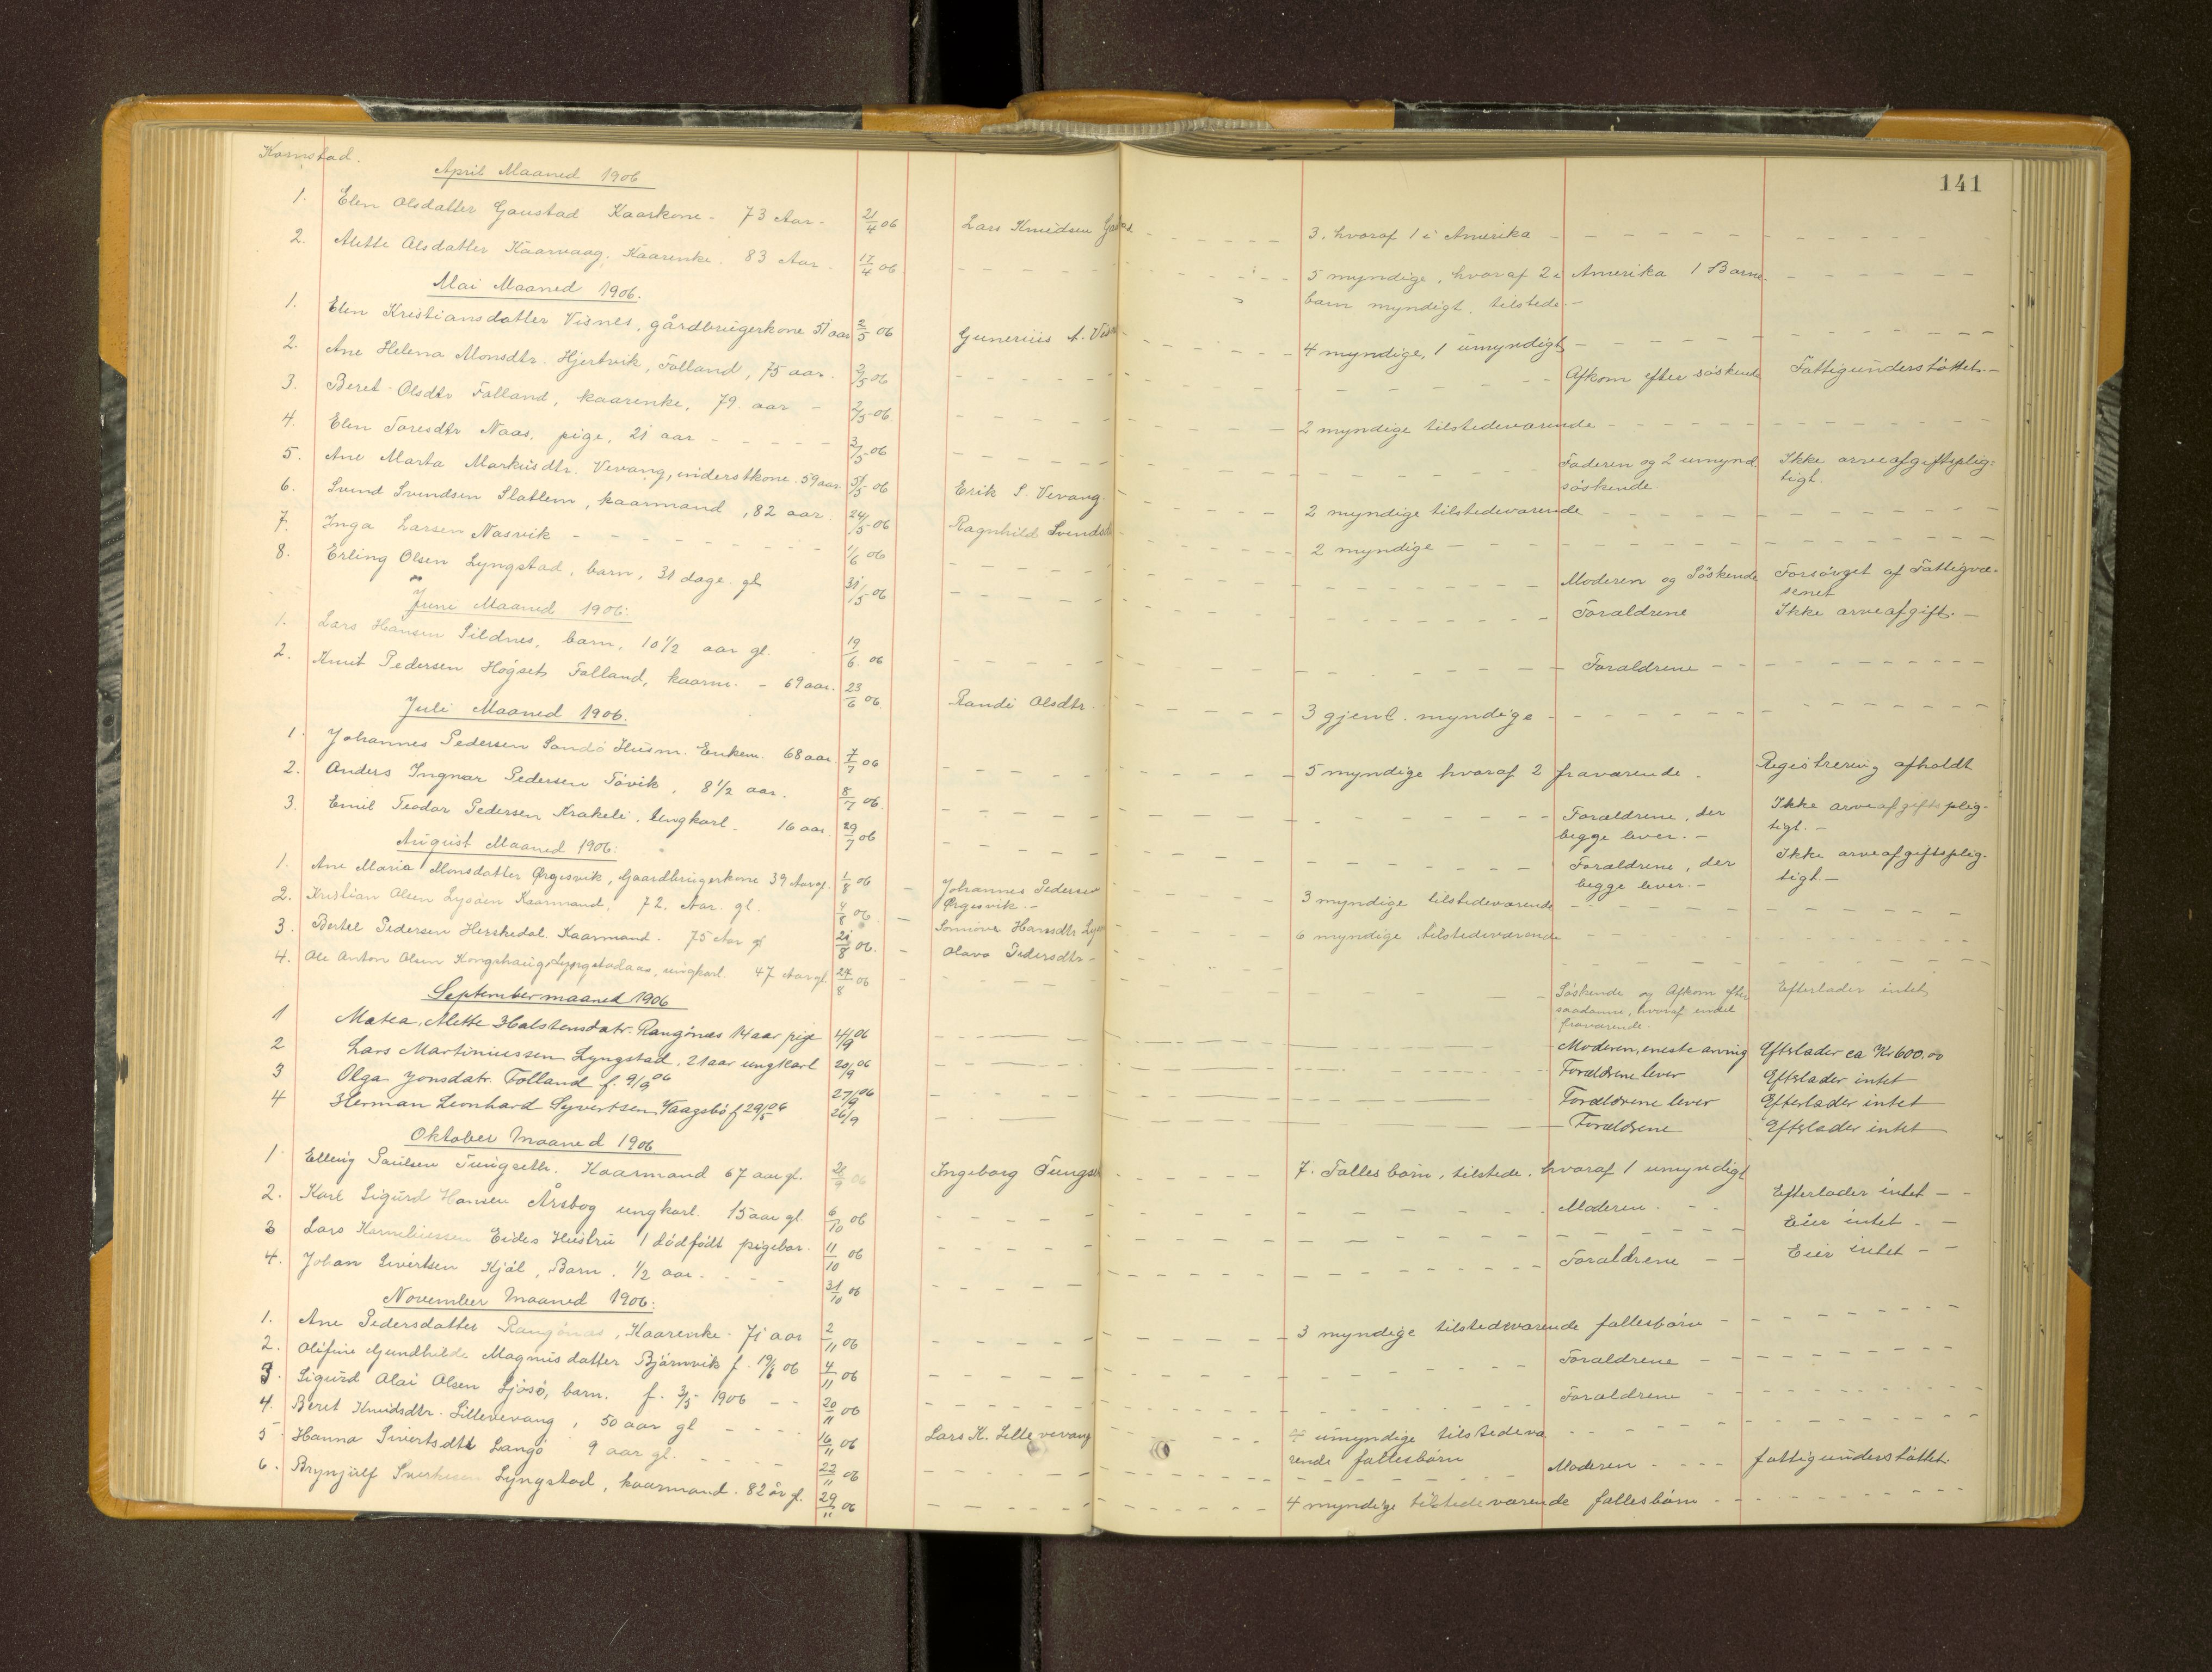 141
Kornstad.
April Maaned 1906
1. Elen Olsdatter Gaustad Kaarkone - 73 Aar - 21/4 06 Lars Knudsen 3. hvoraf 1 i Amerika
2. Alette Olsdatter Kaarvaag. Kaarenke. 83 Aar. 17/4 06 5 myndige, hvoraf 2 i Amerika 1 Barne-
barn myndigt. tilstede. -
Mai Maaned 1906.
1. Elen Kristiansdatter Visnes, gårdbrugerkone 51 aar 2/5 06 Guneriis A. 4 myndige, 1 umyndigt
2. Ane Helena Monsdtr. Hjertvik, Folland, 75 aar. 2/5 06 Afkom efter söskende Fattigunderstöttet. -
3. Beret Olsdtr Folland, kaarenke, 79 aar - 2/5 06 2 myndige tilstedeværende
4. Elen Toresdtr Naas, pige, 21 aar 3/5 06 Faderen og 2 umynd. Ikke arveafgiftsplig-
söskende tigt.
5. Ane Marta Markusdtr. Vevang, inderstkone. 59 aar. 31/5 06 Erik S. Vevang. 2 myndige tilstedeværende
6. Svend Svendsen Slatlem, kaarmand, 82 aar. 24/5 06 Ragnhild 2 myndige
7. Inga Larsen Nasvik 1/6 06 Moderen og Söskende Forsörget af Fattigvæ-
senet
8. Erling Olsen Lyngstad, barn, 31 dage gl 31/5 06 Forældrene Ikke arveafgift. -
Juni Maaned 1906.
1. Lars Hansen Sildnes, barn, 10 1/2 aar gl. 19/6 06 Forældrene
2. Knut Pedersen Högset Folland, kaarm. - 69 aar. 23/6 06. Randi Olsdtr. 3 gjenl. myndige
Juli Maaned 1906.
1. Johannes Pedersen Sandö Husm. Enkem. 68 aar. 7/7 06 5 myndige hvoraf 2 fraværende. Registrering afholdt
2. Anders Ingvar Pedersen Tövik, 8 1/2 aar. 8/7 06. Forældrene, der Ikke arveafgiftsplig-
begge lever. - tigt. -
3. Emil Teodor Pedersen Krakeli, Ungkarl. 16 aar. 29/7 06 Forældrene, der Ikke arveafgiftsplig-
begge lever. - tigt. -
August Maaned 1906.
1. Ane Maria Monsdatter Ørgesvik, Gaardbrugerkone 39 Aar gl. 1/8 06 - Johannes Pedersen 3 myndige tilstedeværende
Ørgesvik. -
2. Kristian Olsen Lysöen Kaarmand. 72. Aar. gl. 4/8 06. - Sonnove Hansdtr 6 myndige tilstedeværende
3. Bertel Pedersen Herskedal. Kaarmand. 75 Aar gl 21/8 06. - Olava Pedersdtr -
4. Ole Anton Olsen Kongshaug, Lyngstadaas, ungkarl. 47 Aar gl. 24/8 06 Söskende og Afkom efter Efterlader intet
saadanne, hvoraf endel
fraværende.
September maaned 1906
1 Matea, Alette Halstensdatr. Rangönæs 14 aar pige 4/9 06 Moderen, eneste arving Efterlader ca Kr 600.00
2 Lars Martiniussen Lyngstad, 21 aar ungkarl 20/9 06 Forældrene lever Efterlader intet
3 Olga Jonsdatr. Folland f. 9/9 06 27/9 06 Forældrene lever Efterlader intet
4 Herman Leonhard Syvertsen Vaagsbö f 29/5 06 26/9 Forældrene Efterlader intet
Oktober Maaned 1906
1. Elling Paulsen Tungseth. Kaarmand 67 aar gl. 21/9 06 Ingeborg 7. Fællesbörn, tilstede, hvoraf 1 umyndigt
2. Karl Sigurd Hansen Årsbog ungkarl. 15 aar gl. 6/10 06 Moderen. Efterlader intet - -
3 Lars Korneliussen Eides Hustru 1 dödfödt pigebar. 11/10 06 Eier intet. -
4. Johan Sivertsen Kjöl, Barn. 1/2 aar. 31/10 06 Forældrene Eier intet - -
November Maaned 1906.
1. Ane Pedersdatter Rangönæs, Kaarenke. 71 aar 2/11 06 3 myndige tilstedeværende fællesbörn
2. Olifine Gundhilde Magnusdatter Björnvik f. 19/6 06 4/11 06 Forældrene
3. Sigurd Olai Olsen Ljösö, barn. f. 3/5 - 1906 20/11 06 Forældrene
4. Beret Knudsdtr. Lillevevang, 50 aar gl 16/11 06 Lars K. Lillevevang umyndige tilstedevæ
rende fællesbörn
5 Hanna Sivertsdtr Langö 9 aar gl. 22/11 06 Moderen fattigunderstöttet.
6. Brynjulf Sverkesen Lyngstad, kaarmand. 82 år gl. 29/11 06 4 myndige tilstedeværende fællesbörn